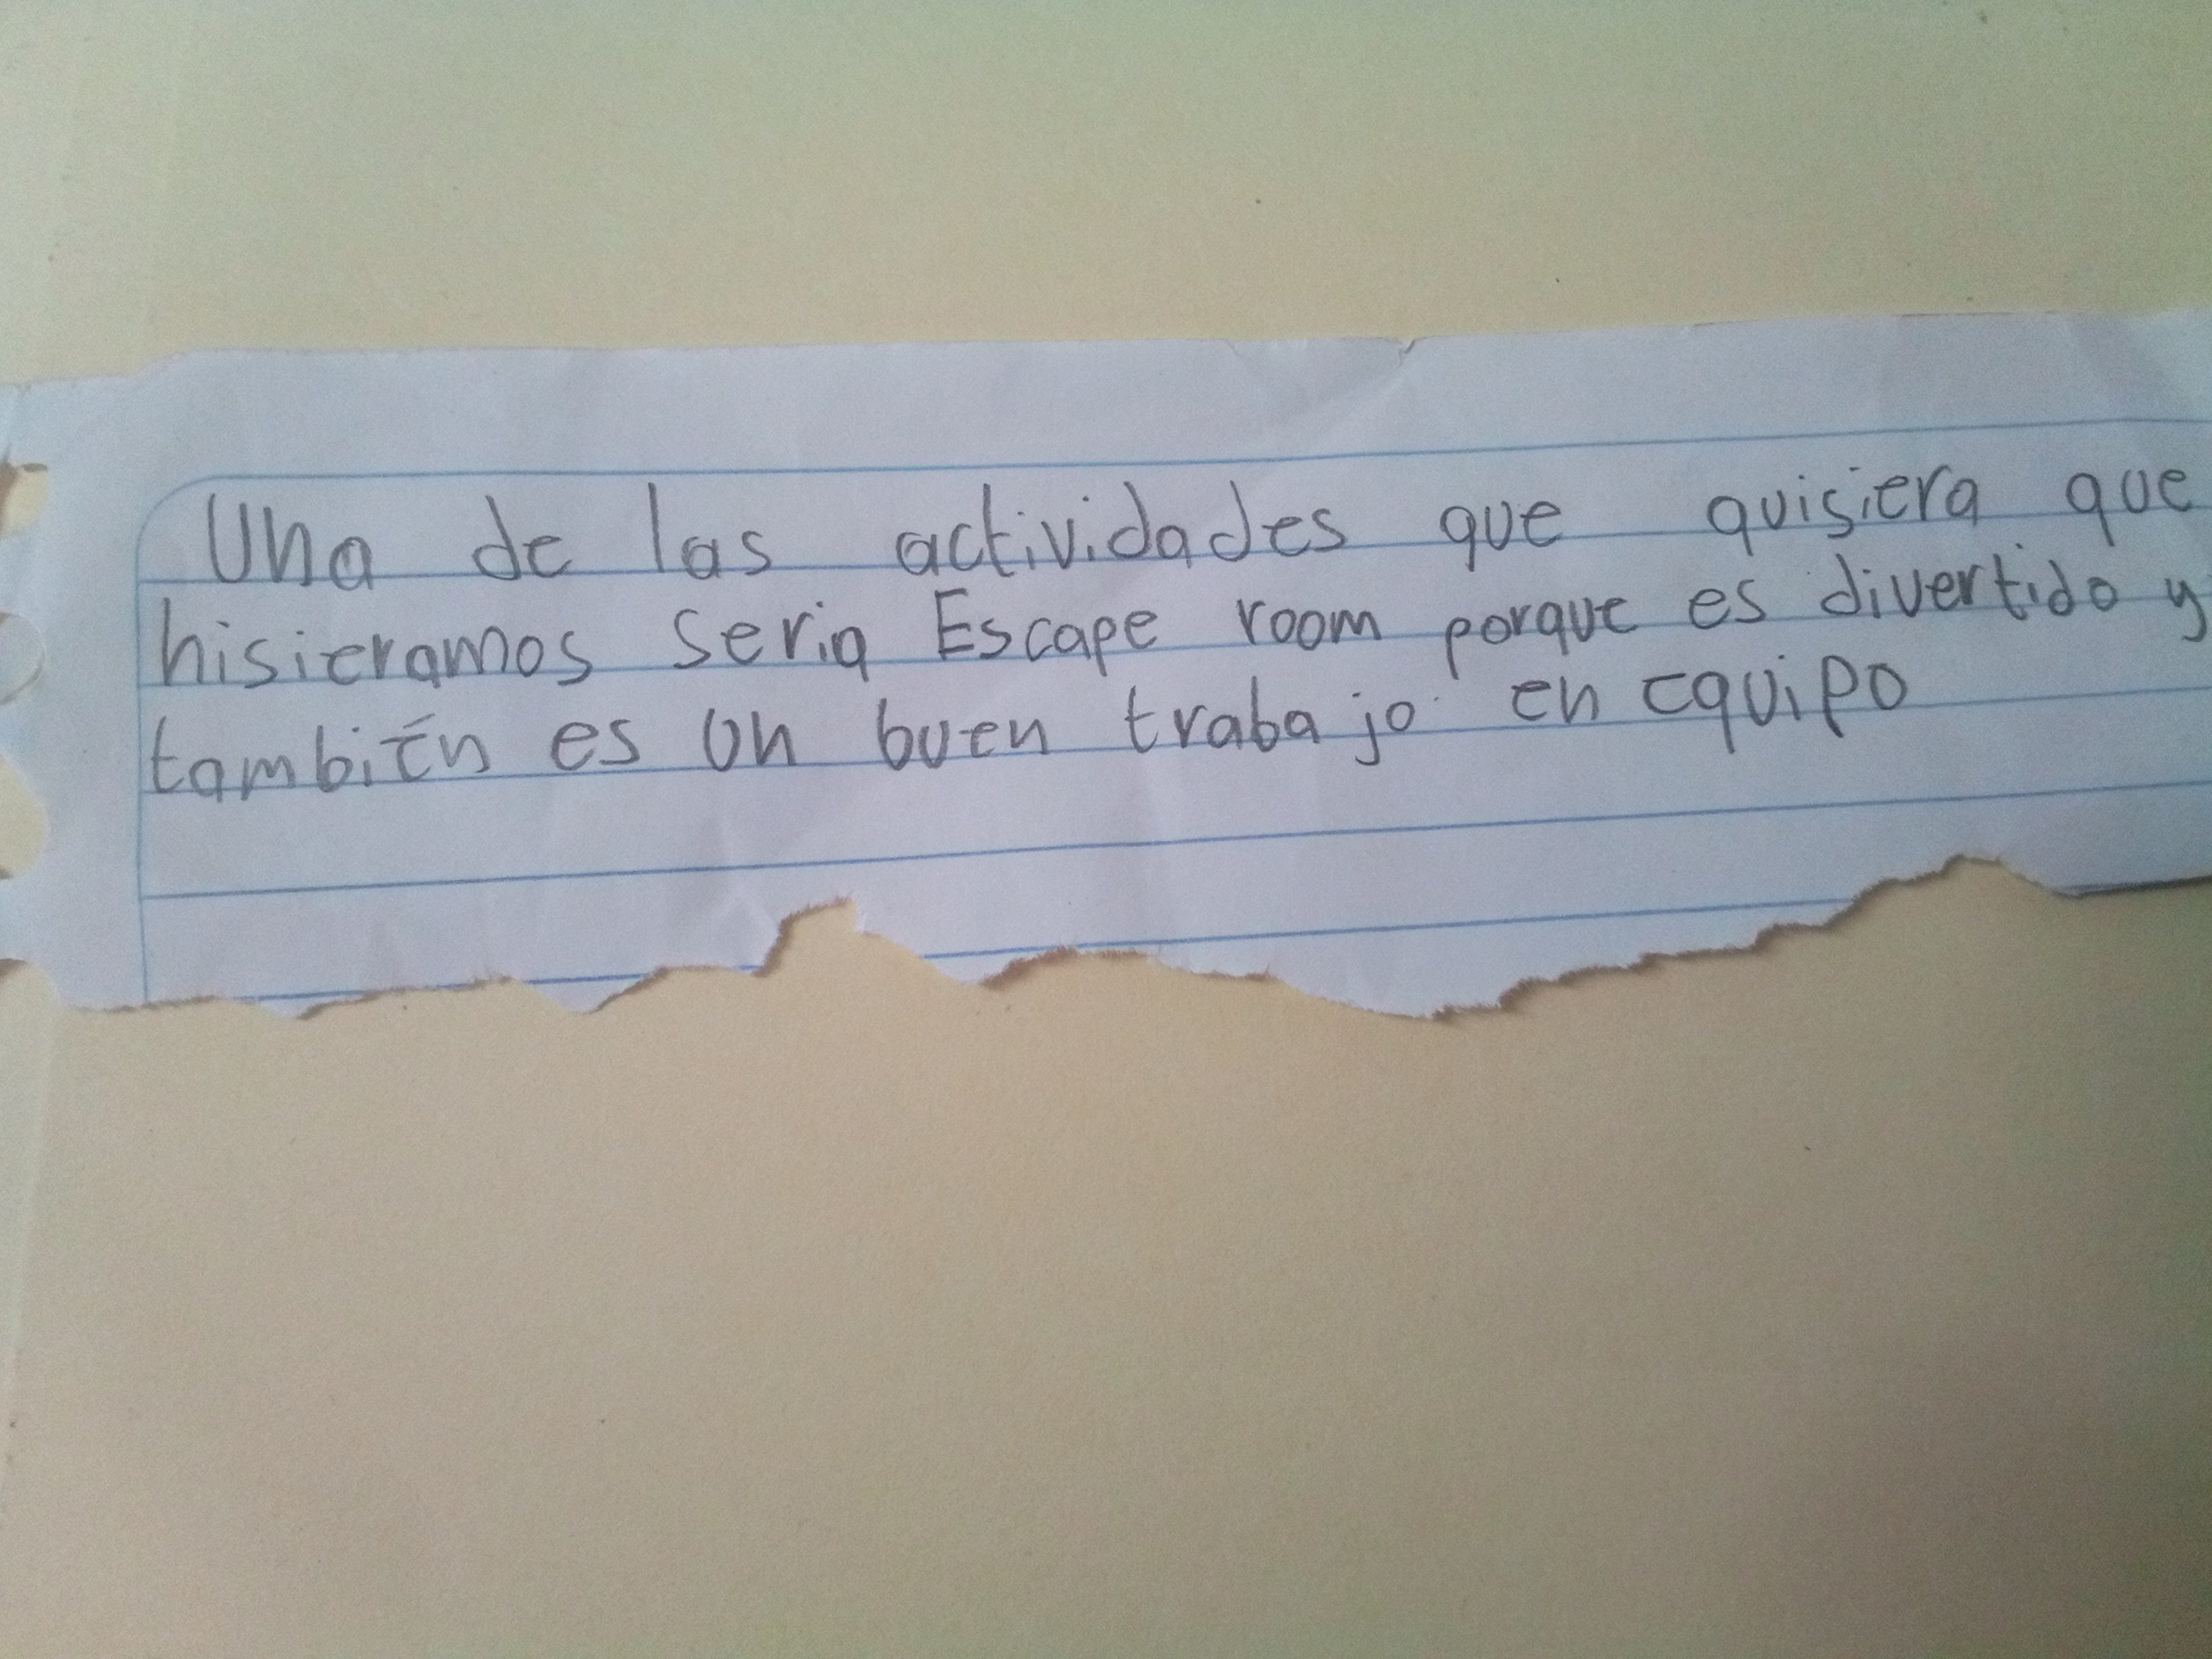 Una de las actividades que quisiera que
hisieramos seria Escape room porque es divertido y
también es un buen trabajo en equipo